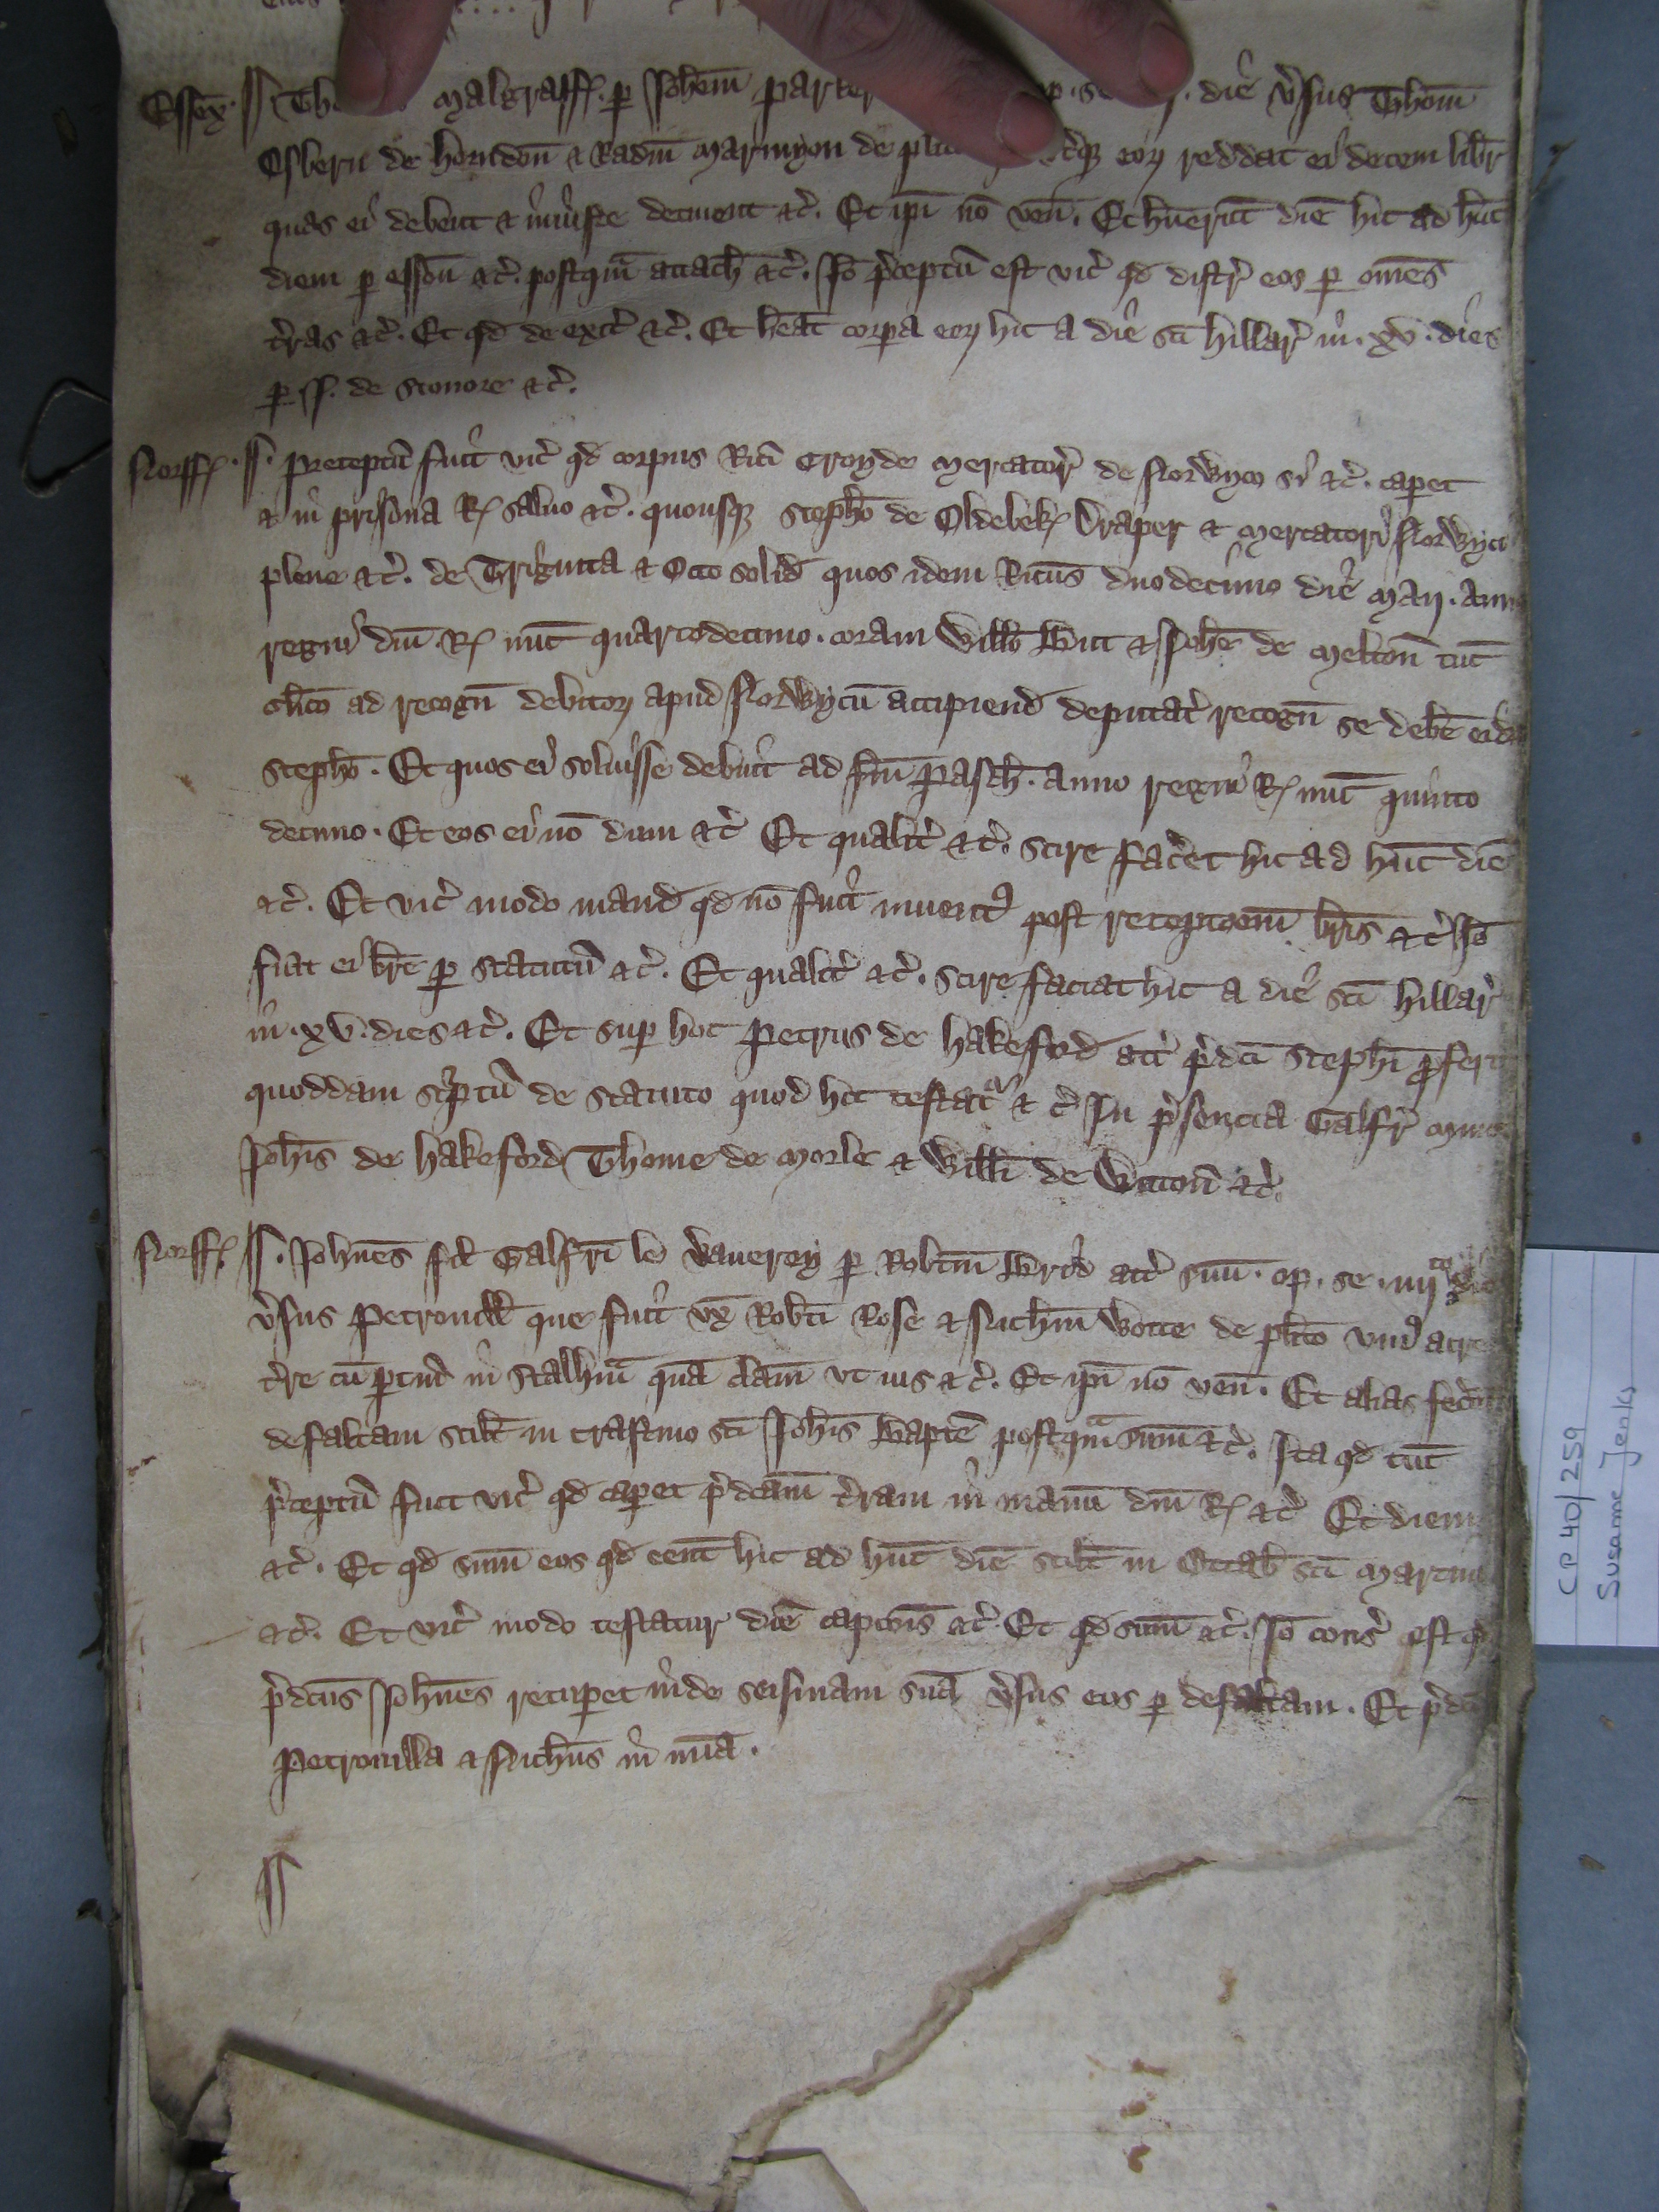 Essex ſſ Malgraff' p Joħem Parker die v̉sus Thom̄
Osbern de Horndon̄ & Rad̄m Marmyon de eoꝝ reddat ei decem libr̄
quas ei debent & iniuste detinent &c̉. Et ip̄i nō ven̄. Et h̄uerūt diē hic ad hūc
diem p esson̄ &c̉. postqᵃm attach̄ &c̉. Jō p̉ceptū est vic̉ qd̄ distr̉ eos p om̄es
t̉ras &c̉. Et qd̄ de exit̉ &c̉. Et h̄eat corpa eoꝝ hic a die sc̄i Hillar̉ in .xv. dies
p J. de Stonore &c̉.
Norff' . ſſ . Preceptū fuit vic̉ qd̄ corpus Ric̄i Croyde Mercator̉ de Norwyco si &c̉. caperet
& in prisona R' saluo &c̉. quousqꝫ Steph̄o de Oldebek' Draper & Mercatori Norwyci
plene &c̉. de Triginta & Octo solid̄ quos idem Ric̄us duodecimo die Maij . Anno
regni dn̄i R' nūc quartodecimo . coram Will̄o But & Joh̄e de Melton̄ tūc
cl̄ico ad recogn̄ debitoꝝ apud Norwycū accipiend̄ deputat̉ recogn̄ se deb̄e eid
Steph̄o . Et quos ei soluisse debuit ad fm̄ Pasch̄ . anno regni R' nūc quinto
decimo . Et eos ei nō dum &c̉ Et qualit̉ &c̉. scire fac̉et hic ad hūc diē
&c̉. Et vic̉ modo mand̄ qd̄ nō fuit inuentꝯ post recepcōem br̄is &c̉ Jō
fiat ei br̄e p statutū &c̉. Et qualit̉ &c̉. scire faciat hic a die sc̄i Hillar̉
in .xv. dies &c̉. Et sup hoc Petrus de Hakeford att̉ p̉dc̄i Steph̄i ꝓfert
quoddam sc̉ptū de statuto quod hoc testatᵃ &c̉ In p̉sencia Galfr̉
Joh̄is de Hakeford Thome de Morle & Will̄i de Witton̄ &c̉.
Norff' . ſſ . Joh̄nes fil̄ Galfr̄i le Vauerey p Rob̄tm̄ Brid att̉ suū . op . se . iiijᵗᵒ die
v̉sus Petronill̄ que fuit vx̄ Rob̄ti Rose & Nich̄m Wotte de pl̄ito vniꝯ acre
t̉re cū ptin̄ in Stalhᵃm quā clam̄ vt ius &c̉. Et ip̄i nō ven̄ . Et alias fec̉unt
defaltam scilt̄ in crastino sc̄i Joh̄is Bapt̄e postqᵃm sum̄ &c̉. Ita qd̄ tūc
p̉ceptū fuit vic̉ qd̄ caperet p̉dc̄am t̉ram in manū dn̄i R' &c̉ Et diem
&c̉. Et qd̄ sum̄ eos qd̄ eēnt hic ad hūc diē scilt̄ in Octab̄ sc̄i Martini
&c̉. Et vic̉ modo testatur diē capc̄ois &c̉ Et qd̄ sum̄ &c̉. Jō cons̉ est qd̄
p̉dc̄us Joh̄nes recuperet inde seisinam suā v̉sus eos p defaltam . Et p̉dc̄i
Petronilla & Nich̄us in mīa .
ſſ
CP 40/259
Susanne Jenks